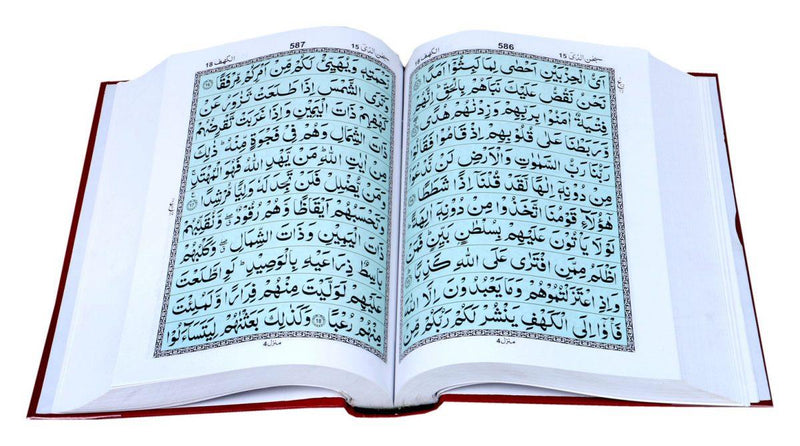 586
سبحٰن الذی ١٥
الکهف ١٨
اَیُّ الْحِزْبَیْنِ اَحْصٰی لِمَا لَبِثُوْۤا اَمَدًا
نَحْنُ نَقُصُّ عَلَیْكَ نَبَاَهُمْ بِالْحَقِّ ؕ اِنَّهُمْ
فِتْیَةٌ اٰمَنُوْا بِرَبِّهِمْ وَزِدْنٰهُمْ هُدًی
وَّرَبَطْنَا عَلٰی قُلُوْبِهِمْ اِذْ قَامُوْا فَقَالُوْا
رَبُّنَا رَبُّ السَّمٰوٰتِ وَالْاَرْضِ لَنْ نَّدْعُوَا۟
مِنْ دُوْنِهٖۤ اِلٰهًا لَّقَدْ قُلْنَاۤ اِذًا شَطَطًا
هٰۤؤُلَآءِ قَوْمُنَا اتَّخَذُوْا مِنْ دُوْنِهٖۤ اٰلِهَةً
لَوْ لَا یَاْتُوْنَ عَلَیْهِمْ بِسُلْطٰنٍۭ بَیِّنٍ فَمَنْ
اَظْلَمُ مِمَّنِ افْتَرٰی عَلَی اللّٰهِ كَذِبًا
وَاِذِ اعْتَزَلْتُمُوْهُمْ وَمَا یَعْبُدُوْنَ اِلَّا اللّٰهَ
فَاْوٗۤا اِلَی الْكَهْفِ یَنْشُرْ لَكُمْ رَبُّكُمْ مِّنْ
منزل ٤
587
سبحٰن الذی ١٥
الکهف ١٨
رَّحْمَتِهٖ وَیُهَیِّئْ لَكُمْ مِّنْ اَمْرِكُمْ مِّرْفَقًا ١٦
وَتَرَی الشَّمْسَ اِذَا طَلَعَتْ تَّزٰوَرُ عَنْ
كَهْفِهِمْ ذَاتَ الْیَمِیْنِ وَاِذَا غَرَبَتْ تَّقْرِضُهُمْ
ذَاتَ الشِّمَالِ وَهُمْ فِیْ فَجْوَةٍ مِّنْهُ ؕ ذٰلِكَ
مِنْ اٰیٰتِ اللّٰهِ ؕ مَنْ یَّهْدِ اللّٰهُ فَهُوَ الْمُهْتَدِ
وَمَنْ یُّضْلِلْ فَلَنْ تَجِدَ لَهٗ وَلِیًّا مُّرْشِدًا ١٧
وَتَحْسَبُهُمْ اَیْقَاظًا وَّهُمْ رُقُوْدٌ ۖ وَّنُقَلِّبُهُمْ
ذَاتَ الْیَمِیْنِ وَذَاتَ الشِّمَالِ ۖ وَكَلْبُهُمْ
بَاسِطٌ ذِرَاعَیْهِ بِالْوَصِیْدِ ؕ لَوِ اطَّلَعْتَ
عَلَیْهِمْ لَوَلَّیْتَ مِنْهُمْ فِرَارًا وَّلَمُلِئْتَ
مِنْهُمْ رُعْبًا ١٨ وَكَذٰلِكَ بَعَثْنٰهُمْ لِیَتَسَآءَلُوْا
منزل ٤